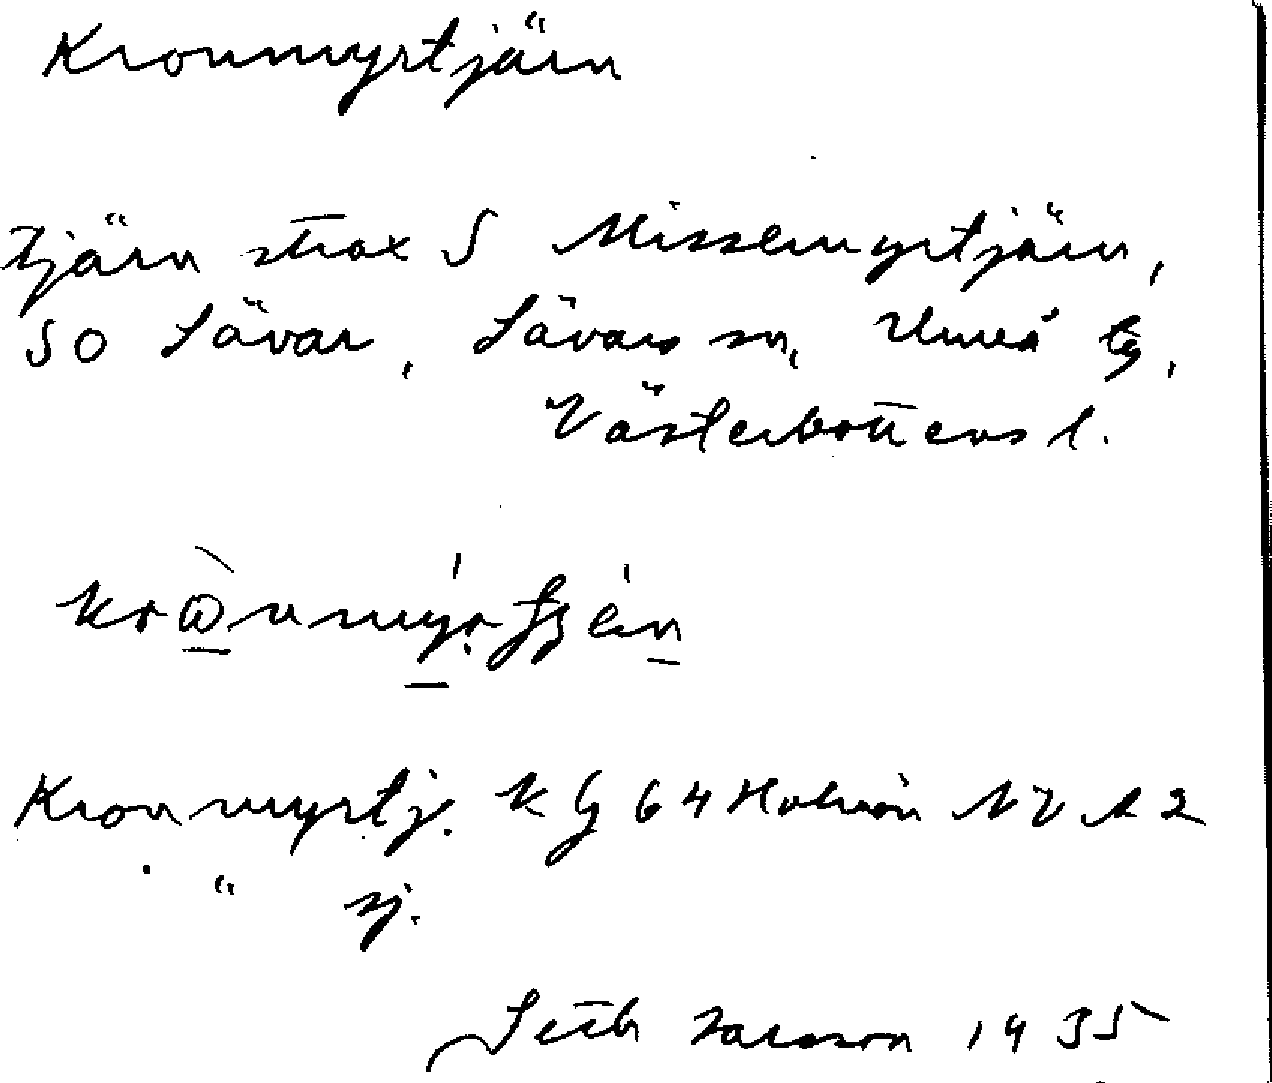 Kronmyrtjärn
tjärn strax S Misselmyrtjärn,
SO Sävar, Sävars sn, Umeå
Västerbottens l.
Kronmyrtj. K G 64 Holmön NV A 2
" sj.
Seth Larsson 1935